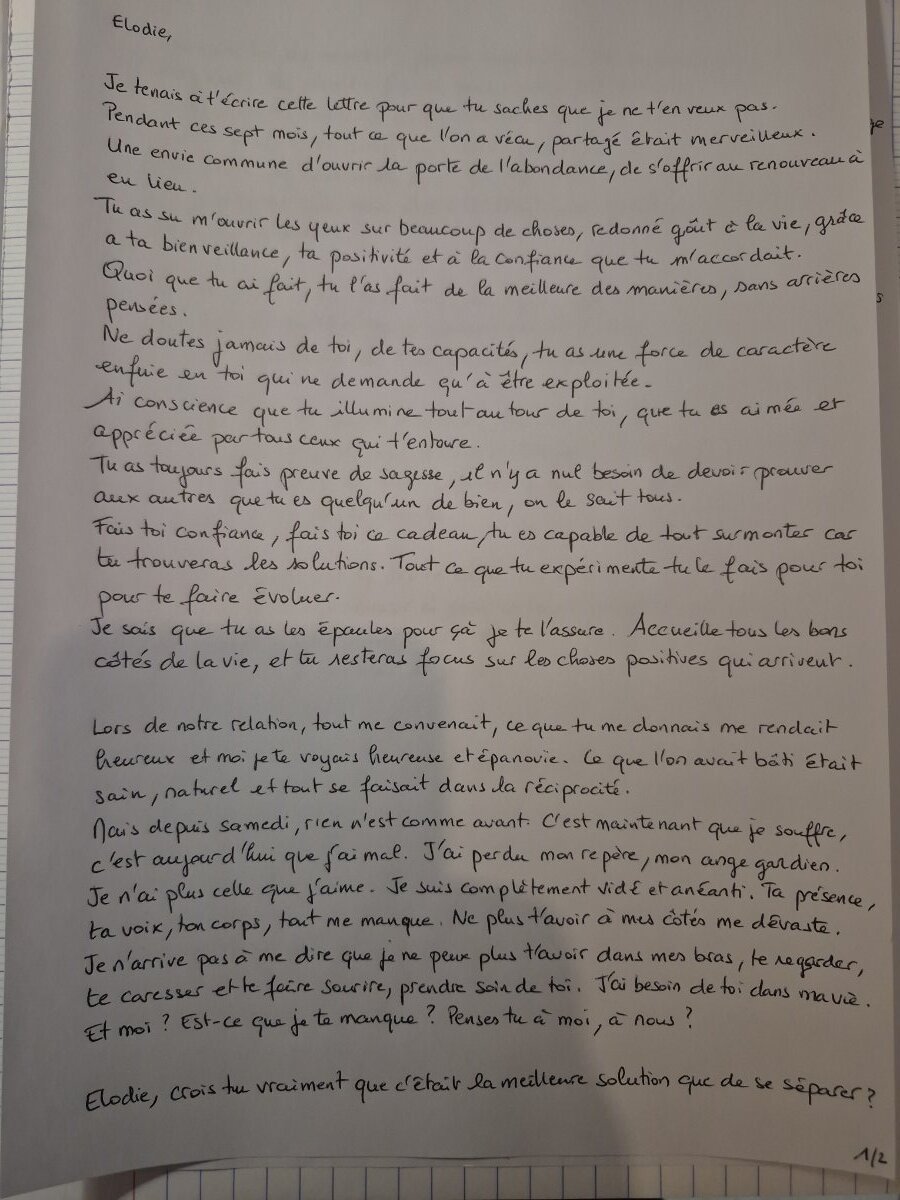 Elodie,
Je tenais à t'écrire cette lettre pour que tu saches que je ne t'en veux pas.
Pendant ces sept mois, tout ce que l'on a vécu, partagé était merveilleux.
Une envie commune d'ouvrir la porte de l'abondance, de s'offrir au renouveau à
eu lieu.
Tu as su m'ouvrir les yeux sur beaucoup de choses, redonné goût à la vie, grâce
a ta bienveillance, ta positivité et à la confiance que tu m'accordait.
Quoi que tu ai fait, tu l'as fait de la meilleure des manières, sans arrières
pensées.
Ne doutes jamais de toi, de tes capacités, tu as une force de caractère
enfuie en toi qui ne demande qu'à être exploitée.
Ai conscience que tu illumine tout autour de toi, que tu es aimée et
appréciée par tous ceux qui t'entoure.
Tu as toujours fais preuve de sagesse, il n'y a nul besoin de devoir prouver
aux autres que tu es quelqu'un de bien, on le sait tous.
Fais toi confiance, fais toi ce cadeau, tu es capable de tout surmonter car
tu trouveras les solutions. Tout ce que tu expérimente tu le fais pour toi
pour te faire évoluer.
Je sais que tu as les épaules pour çà je te l'assure. Accueille tous les bons
côtés de la vie, et tu resteras focus sur les choses positives qui arrivent.
Lors de notre relation, tout me convenait, ce que tu me donnais me rendait
heureux et moi je te voyais heureuse et épanouie. Ce que l'on avait bâti était
sain, naturel et tout se faisait dans la réciprocité.
Mais depuis samedi, rien n'est comme avant. C'est maintenant que je souffre,
c'est aujourd'hui que j'ai mal. J'ai perdu mon repère, mon ange gardien.
Je n'ai plus celle que j'aime. Je suis complètement vidé et anéanti. Ta présence,
ta voix, ton corps, tout me manque. Ne plus t'avoir à mes côtés me dévaste.
Je n'arrive pas à me dire que je ne peux plus t'avoir dans mes bras, te regarder,
te caresser et te faire sourire, prendre soin de toi. J'ai besoin de toi dans ma vie.
Et moi ? Est-ce que je te manque ? Penses tu à moi, à nous ?
Elodie, crois tu vraiment que c'était la meilleure solution que de se séparer ?
1/2